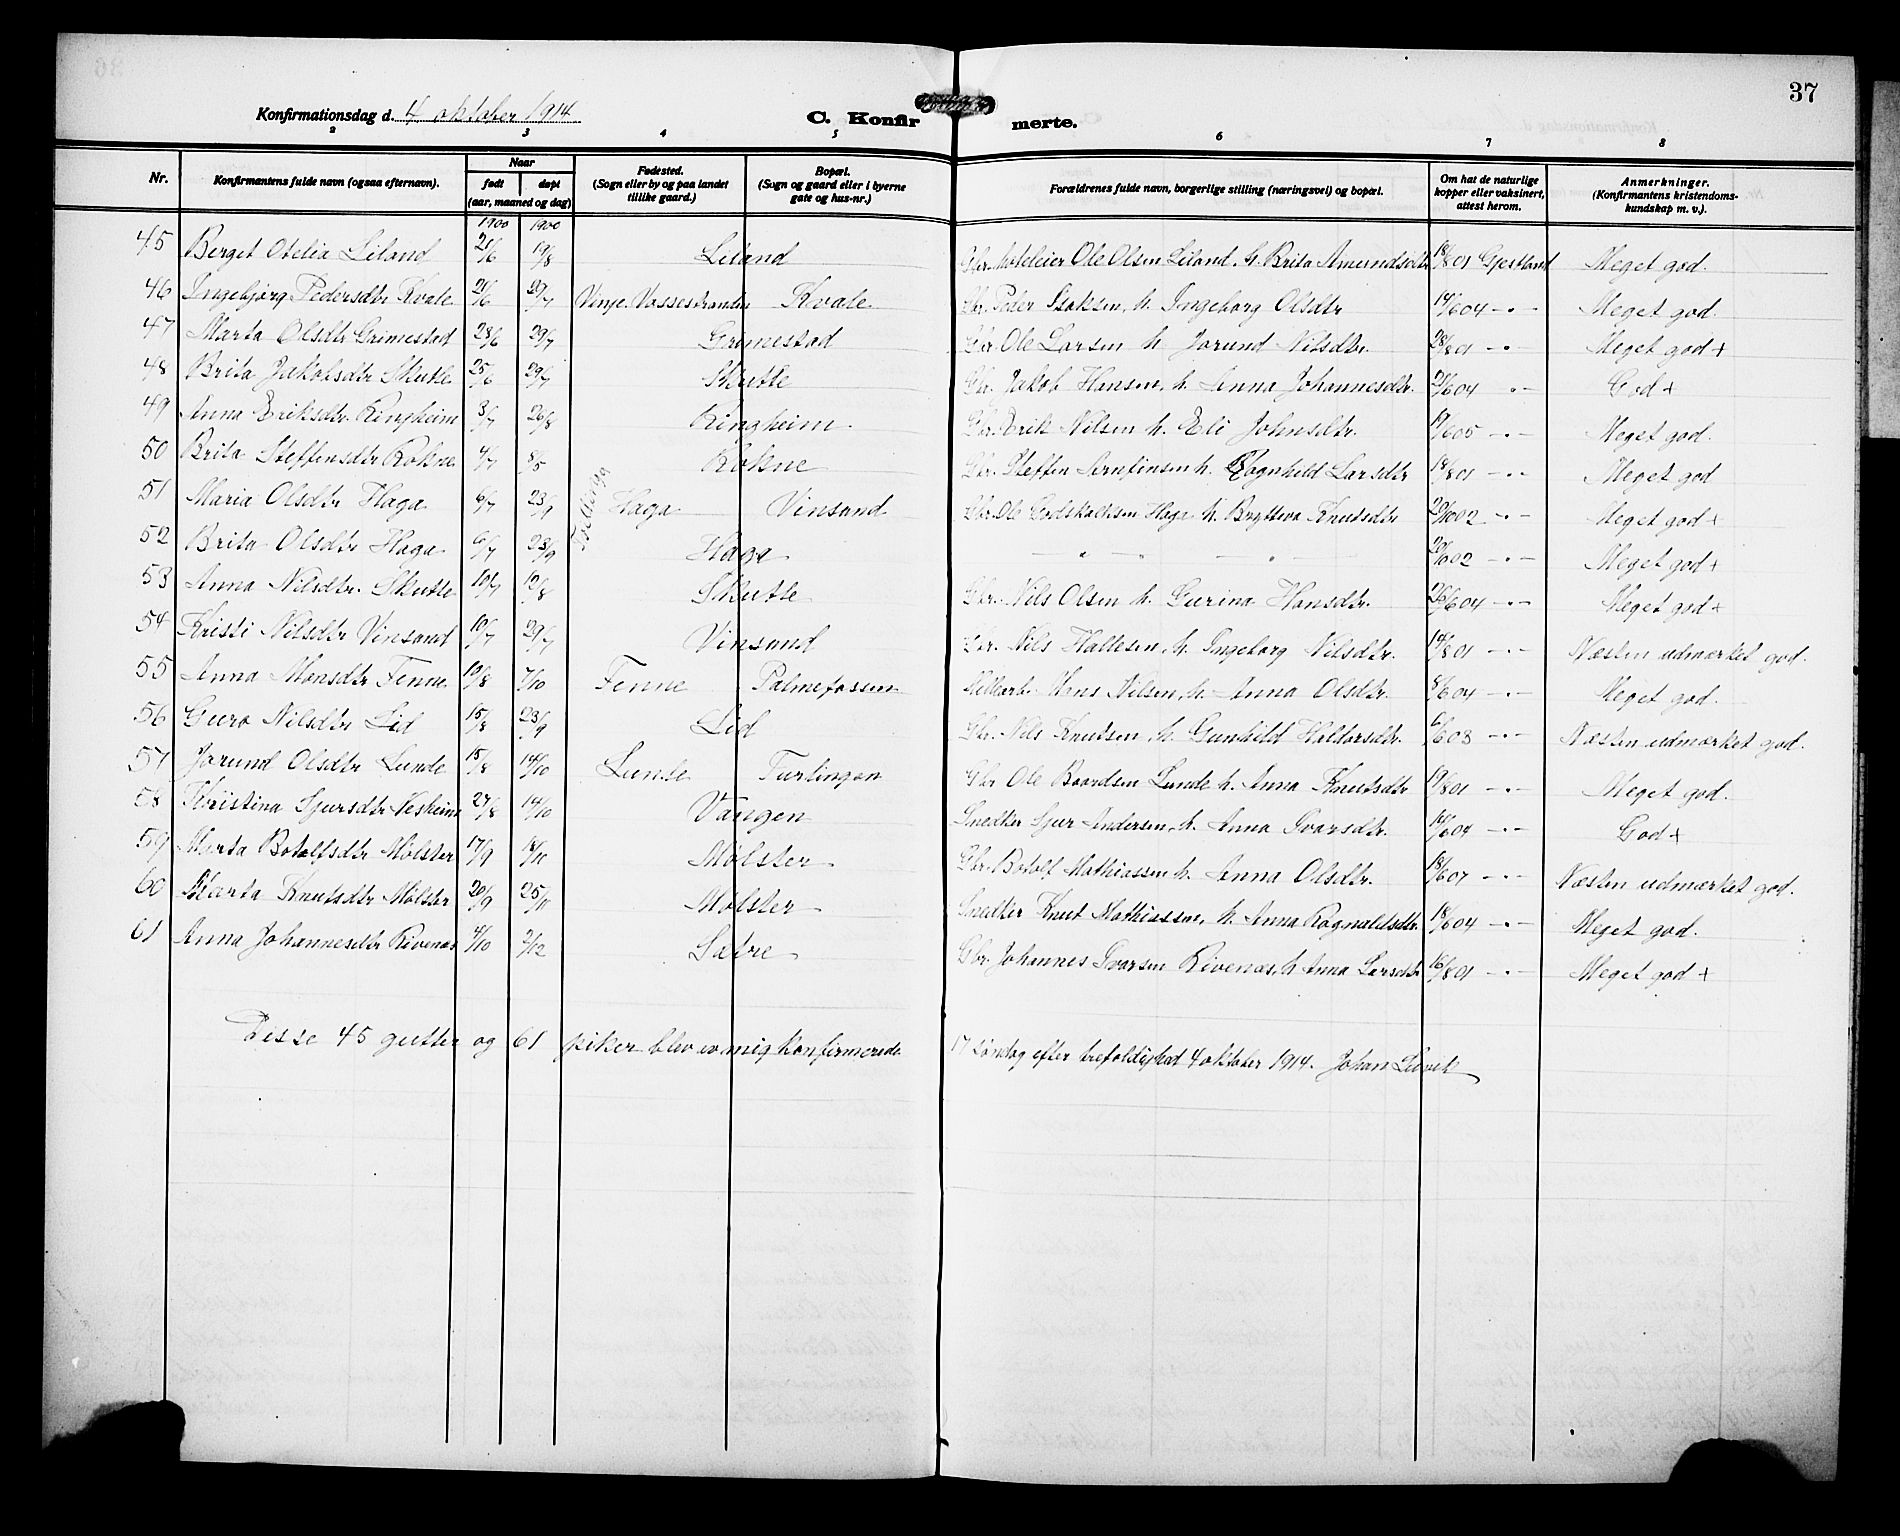 37
Konfirmationsdag d. 4 oktober 1914
C. Konfirmerte.
2 3 4 5 6 7 8
Nr. Konfirmantens fulde navn (ogsaa efternavn). Naar født døpt (aar, maaned og dag) Fødested. (Sogn eller by og paa landet tillike gaard.) Bopæl. (Sogn og gaard eller i byerne gate og hus-nr.) Forældrenes fulde navn, borgerlige stilling (næringsvei) og bopæl. Om hat de naturlige kopper eller vaksinert, attest herom. Anmerkninger. (Konfirmantens kristendomskundskap m. v.).
1900 1900
45 Berget Otelia Liland 21/6 19/8 Liland Gbr. hoteleier Ole Olsen Liland, h. Brita Amundsdtr 18/8 01 Gjestland Meget god.
46 Ingebjørg Pedersdtr Kvale 21/6 29/7 Vinje. Vossestranden Kvale Gbr. Peder Isaksen, h. Ingeborg Olsdtr 14/6 04 -"- Meget god.
47 Marta Olsdtr Grimestad 23/6 29/7 Grimestad Gbr. Ole Larsen h. Jorund Nilsdtr. 28/8 01 " Meget god +
48 Brita Jakobsdtr Skutle 25/6 29/7 Skutle Gbr. Jakob Hansen, h. Anna Johannesdtr. 21/6 04 "- God +
49 Anna Eriksdtr. Ringheim 3/7 26/8 Ringheim Gbr. Erik Nilsen h. Eli Johnsdtr. 19/6 05 -"- Meget god.
50 Brita Steffensdtr Rokne 4/7 8/5 Rokne Gbr. Steffen Arnfinsen h. Ragnhild Larsdtr 18/8 01 -"- Meget god
51 Maria Olsdtr Haga 6/7 23/9 Haga Vinsand Gbr. Ole Godskalksen Haga h. Brytteva Knutsdtr 20/10 02 -"- Meget god +
52 Brita Olsdtr Haga 6/7 23/9 Haga - " - - " - 20/6 02 -"- Meget god +
53 Anna Nilsdtr. Skutle 10/7 19/8 Skutle Gbr. Nils Olsen h. Gurina Hansdtr. 26/6 04 -"- Meget god +
54 Kristi Nilsdtr Vinsand 19/7 29/7 Vinsand Gbr. Nils Hallesen, h. Ingeborg Nilsdtr. 14/8 01 -"- Næsten udmærket god.
55 Anna Monsdtr Fenne 13/8 7/10 Fenne Palmefossen Mons Nilsen, h. Anna Olsdtr. 8/6 04 -"- Meget god.
56 Guro Nilsdtr Lid 15/8 23/9 Lid Gbr. Nils Knutsen, h. Gunhild Haldorsdtr. 6/6 03 -"- Næsten udmærket god.
57 Jorund Olsdtr Lunde 15/8 14/10 Lunde Gbr Ole Baardsen Lunde h. Anna Knutsdtr 19/8 01 -"- Meget god.
58 Kristina Sjursdtr Vesheim 27/8 14/10 Vangen Snedker Sjur Andersen, h. Anna Ivarsdtr. 14/6 04 -"- God +
59 Marta Botolfsdtr Mølster 17/9 18/10 Mølster Gbr. Botolf Mathiassen h. Anna Olsdtr. 18/6 07 -"- Næsten udmærket god.
60 Marta Knutsdtr Mølster 20/9 25/11 Mølster Snedker Knut Mathiassen, h. Anna Ragnaldsdtr. 18/6 04 -"- Meget god.
61 Anna Johannesdtr Rivenæs 4/10 2/12 Sætre Gbr. Johannes Ivarsen Rivenæs, h Anna Larsdtr 16/8 01 -"- Meget god +
Disse 45 gutter og 61 piker blev av mig konfirmerede 17 søndag efter trefoldighed 4 oktober 1914. Johan Løvik